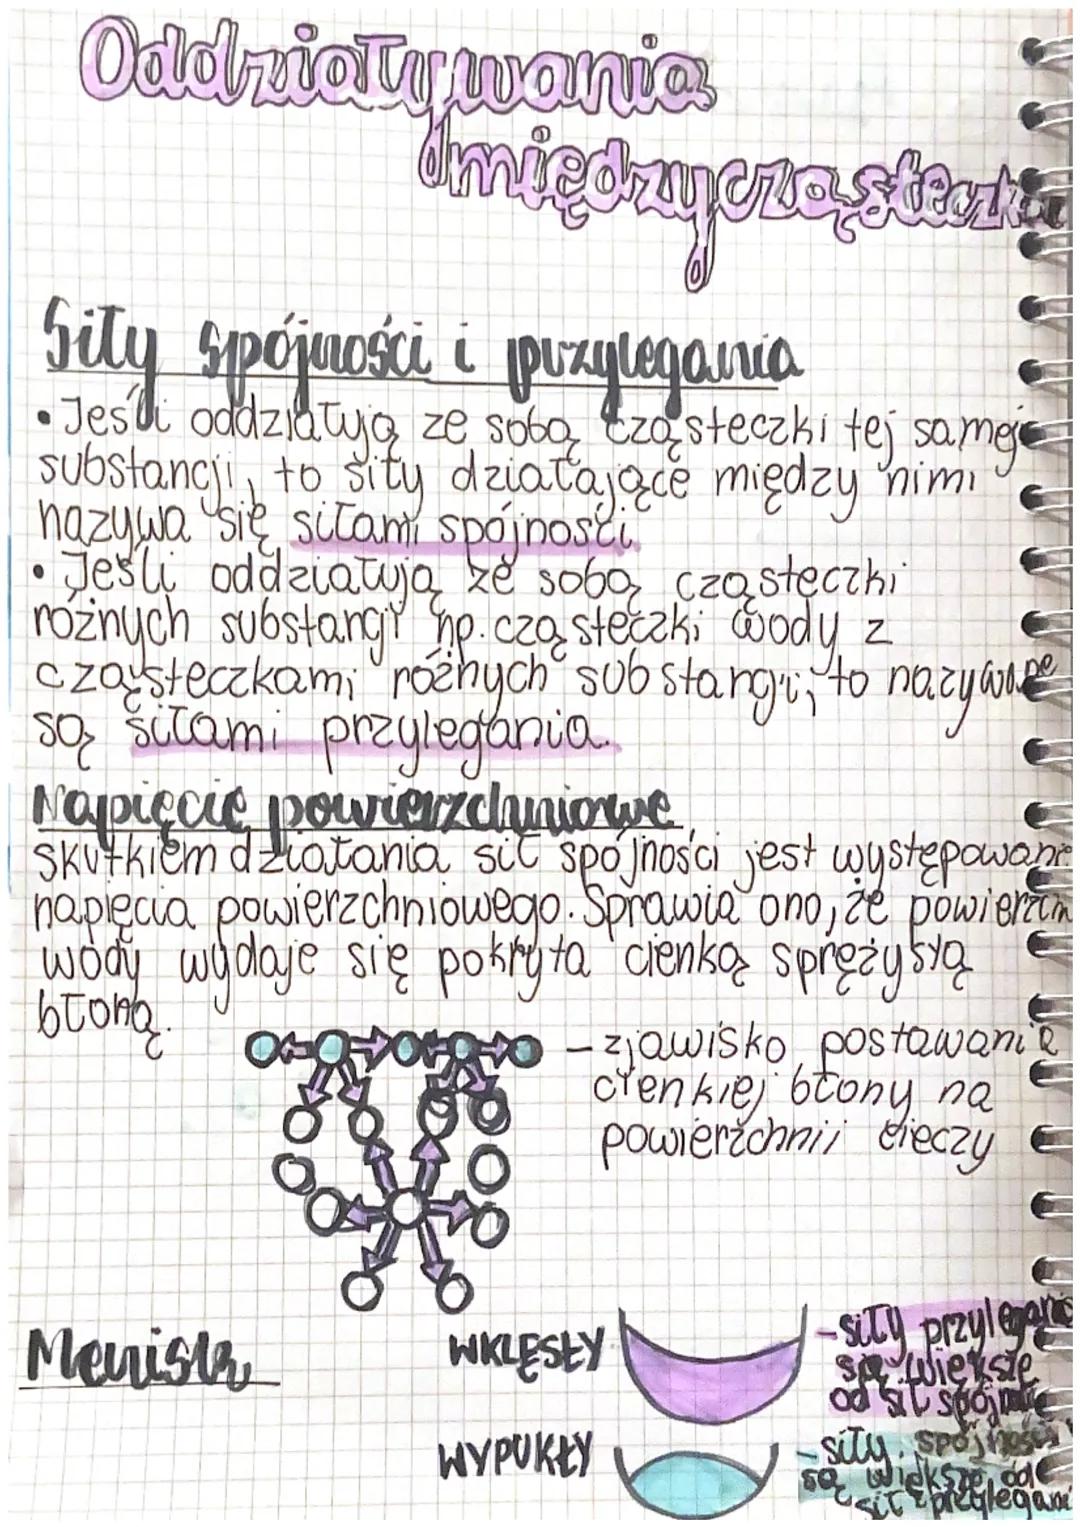 Oddziaływania
międzycząsteczk
Siły spójności i przylegania
• Jeśli oddziałują ze sobą cząsteczki tej samej
substancji, to siły działające między nimi
nazywa się siłami spójności
• Jeśli oddziałują ze sobą cząsteczki
różnych substancji np. cząsteczki wody z
cząsteczkami różnych substancji, to nazywane
są siłami przylegania.
Napięcie powierzchniowe
skutkiem działania sił spójności jest występowanie
napięcia powierzchniowego. Sprawia ono, że
wody wydaje się pokryta cienką sprężystą
błoną.
– zjawisko postawanie
cienkiej błony na
powierzchnii cieczy
Menisk
WKLĘSŁY
– siły przylegania
są większe
od sił
WYPUKŁY
– siły spójności
są większe od
sił przylegani